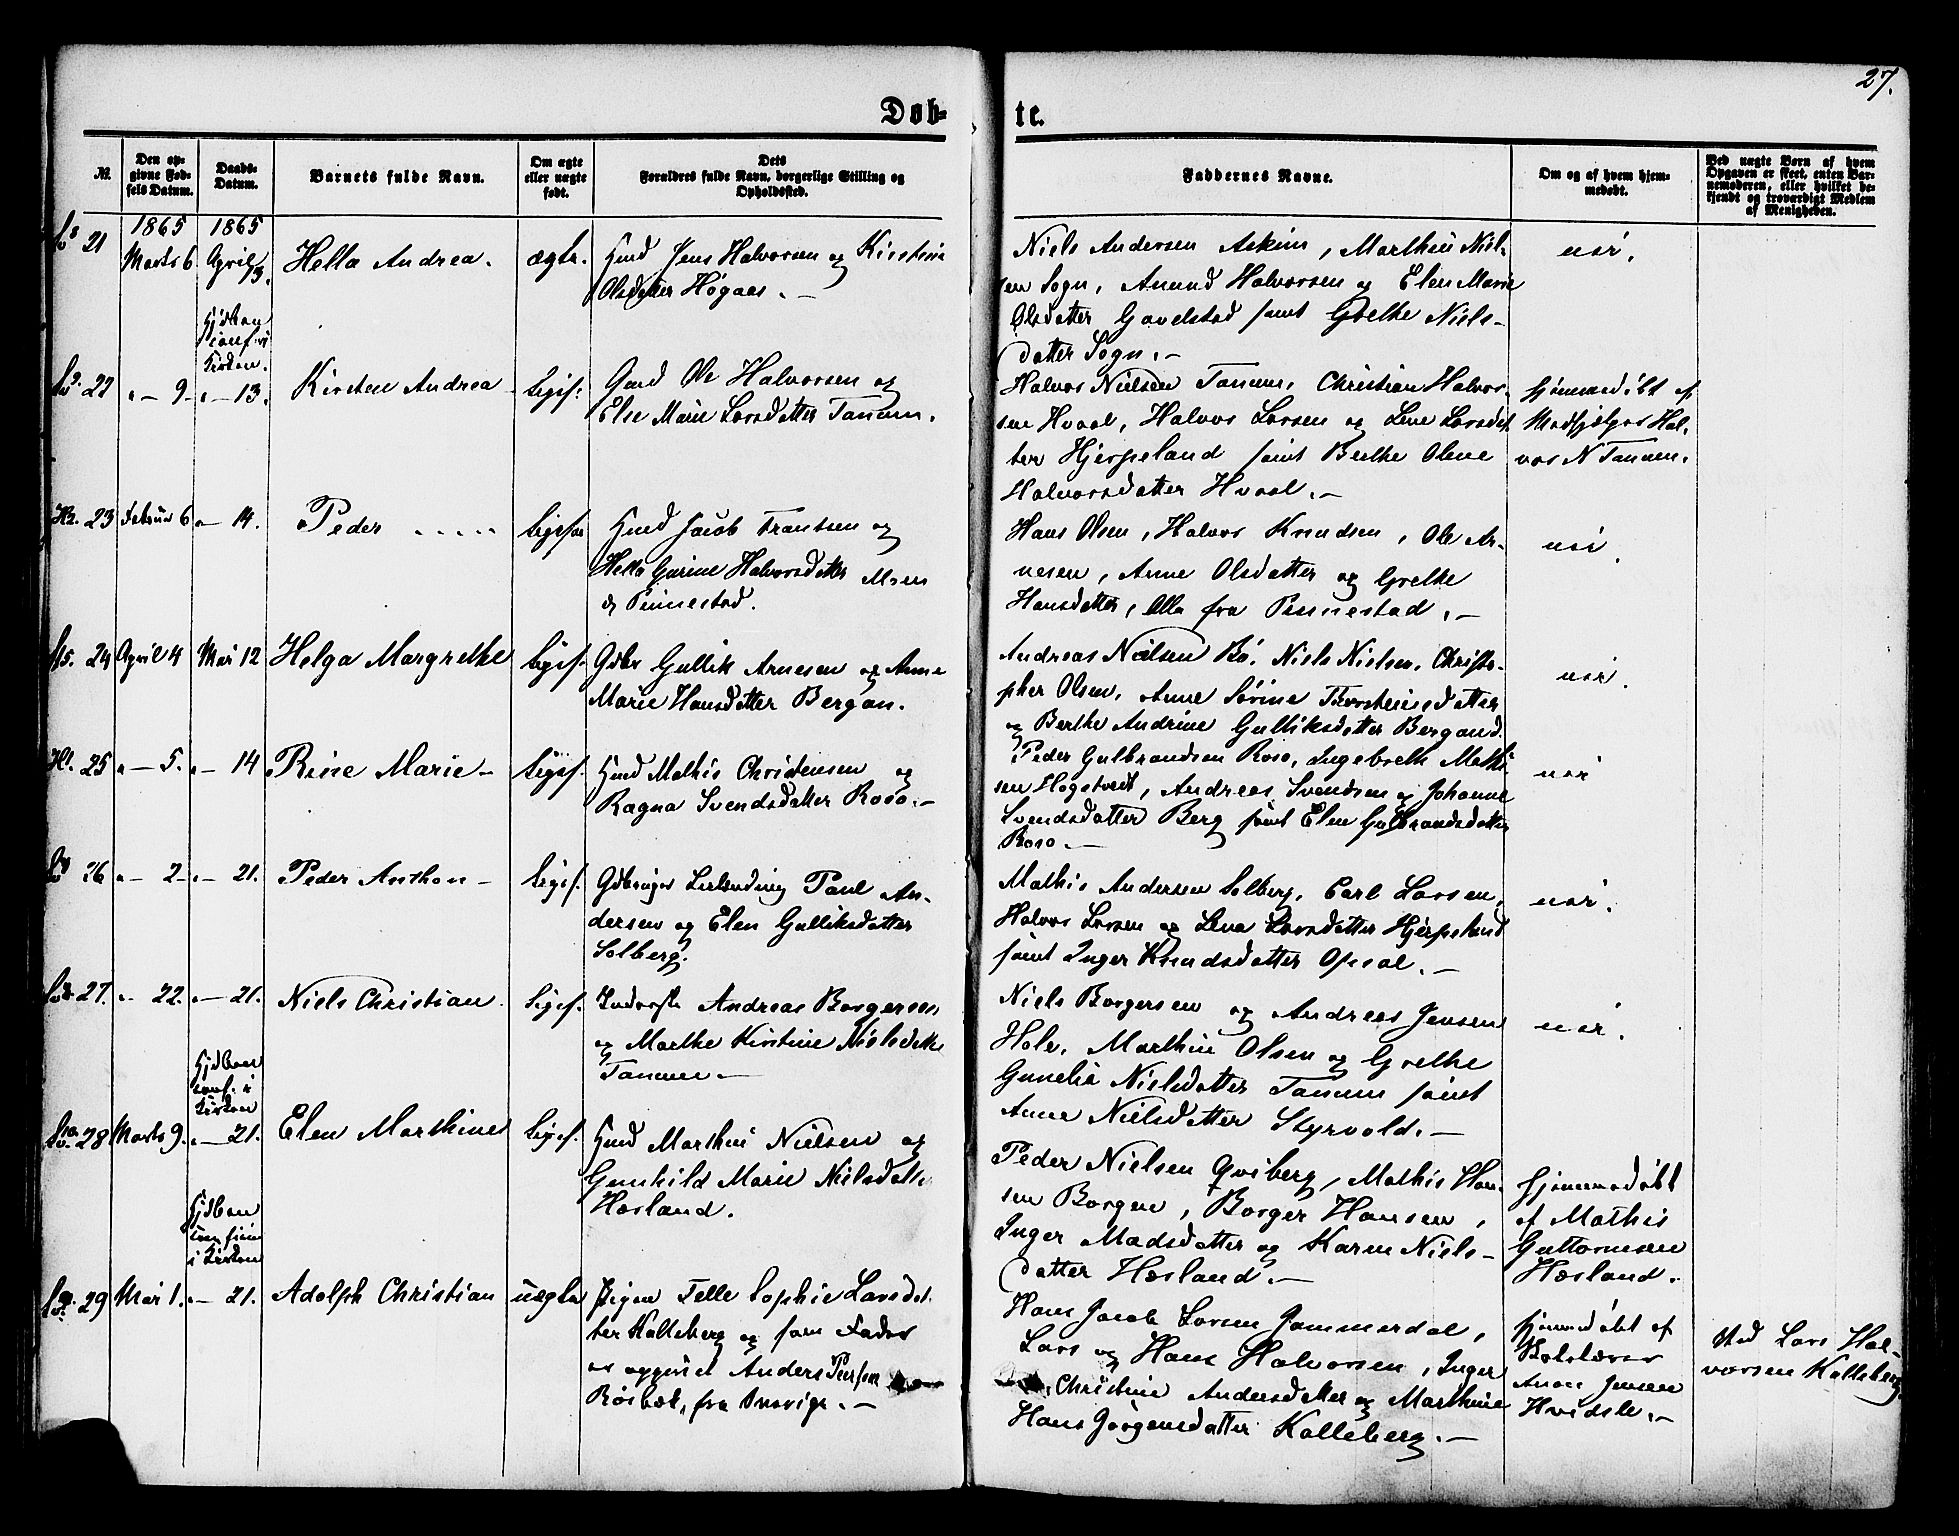 27.
Døb-
te.
№.
Den op-
givne Fød-
sels Datum.
Daabs-
Datum.
Barnets fulde Navn.
Om ægte
eller uægte
født.
Dets
Forældres fulde Navn, borgerlige Stilling og
Opholdssted.
Faddernes Navne.
Om og af hvem hjem-
medøbt.
Ved uægte Børn af hvem
Opgaven er skeet, enten Bar-
nemoderen, eller hvilket be-
kjendt og troværdigt Medlem
af Menigheden.
21
1865
Marts 6
1865
April
Hella Andrea.
ægte.
Hmd Jens Halvorsen og Kirstine
Olsdatter Høgaas. —
Niels Andersen Askim, Marthin Niel-
sen Sogn, Amund Halvorsen og Elen Marie
Olsdatter Gavelstad samt Grethe Niels-
datter Sogn. —
nei.
22
" — 9
" — 13.
Kirsten Andrea
Ligesf.
Gmd Ole Halvorsen og
Else Marie Larsdatter Tanum.
Halvor Nielsen Tanum, Christian Halvor-
sen Hvaal, Halvor Larsen og Lene Larsdat
ter Hjerpeland samt Berthe Olene
Halvorsdatter Hvaal. —
hjemmedøbt af
Medhjelper Hal-
vor N Tanum.
23
Februar 6
" — 14.
Peder
Ligesom
Hmd Jacob Frantsen og
Hella Gurine Halvorsdatter Moen
Pennestad.
Hans Olsen, Halvor Knudsen, Ole Ar-
nesen, Anne Olsdatter og Grethe
Hansdatter, Alle fra Pennestad. —
nei.
24
April 4
Mai 12
Helga Margrethe
Ligesf.
Gdbr Gullik Arnesen og Anne
Marie Hansdatter Bergan.
Andreas Nielsen Bø, Niels Nielsen, Christo-
pher Olsen, Anne Sørine Thorsteinsdatter
og Berthe Andrine Gulliksdatter Bergand.
nei.
25
" — 5.
" — 14
Rine Marie —
Ligesf.
Hmd Mathis Christensen og
Ragna Svendsdatter Roso. —
Peder Gulbrandsen Roso, Ingebreth Mathi
sen Høgstvedt, Andreas Svendsen og Johanne
Svendsdatter Berg samt Elen Gulbrandsdatter
Roso —
nei
26
" — 2 —
" — 21.
Peder Anthon —
Ligesf.
Gdbruger Paul An-
dersen og Elen Gulliksdatter
Solberg.
Mathis Andersen Solberg, Carl Larsen,
Halvor Larsen og Lena Larsdatter Hjerpeland
samt Inger Knudsdatter Opsal. —
nei.
27.
" 22.
" — 21.
Niels Christian.
Ligesf.
Inderste Andreas Borgersen
og Marthe Kirstine Nielsdatter
Tanum —
Niels Borgersen og Andreas Jensen
Hole, Marthin Olsen og Grethe
Gunelia Nielsdatter Tanum samt
Anne Nielsdatter Styrvold. —
nei.
28
Marts 9.
" — 21.
Elen Marthine
Ligesf.
Hmd Marthin Nielsen og
Gunhild Marie Nielsdatter
Hæsland.
Peder Nielsen Qviberg, Mathis Han-
sen Borgen, Borger Hansen,
Inger Madsdatter og Karen Niels-
datter Hæsland. —
hjemmedøbt
af Mathis
Guttormsen
Hæsland.
29
Mai 1.
" — 21.
Adolph Christian
uægte
Pigen Telle Sophie Larsdat
ter Kalleberg og som Fader
er opgivet Anders Person
Rösbæk, fra Sverige. —
Hans Jacob Larsen Jammerdal,
Lars og Hans Halvorsen, Inger
Christine Andersdatter og Marthine
Hans Jørgensdatter Kalleberg. —
hjemmedøbt af
Skolelærer
Anon Jensen
Hvidsle. —
Ved Lars Hal-
vorsen Kalleberg.